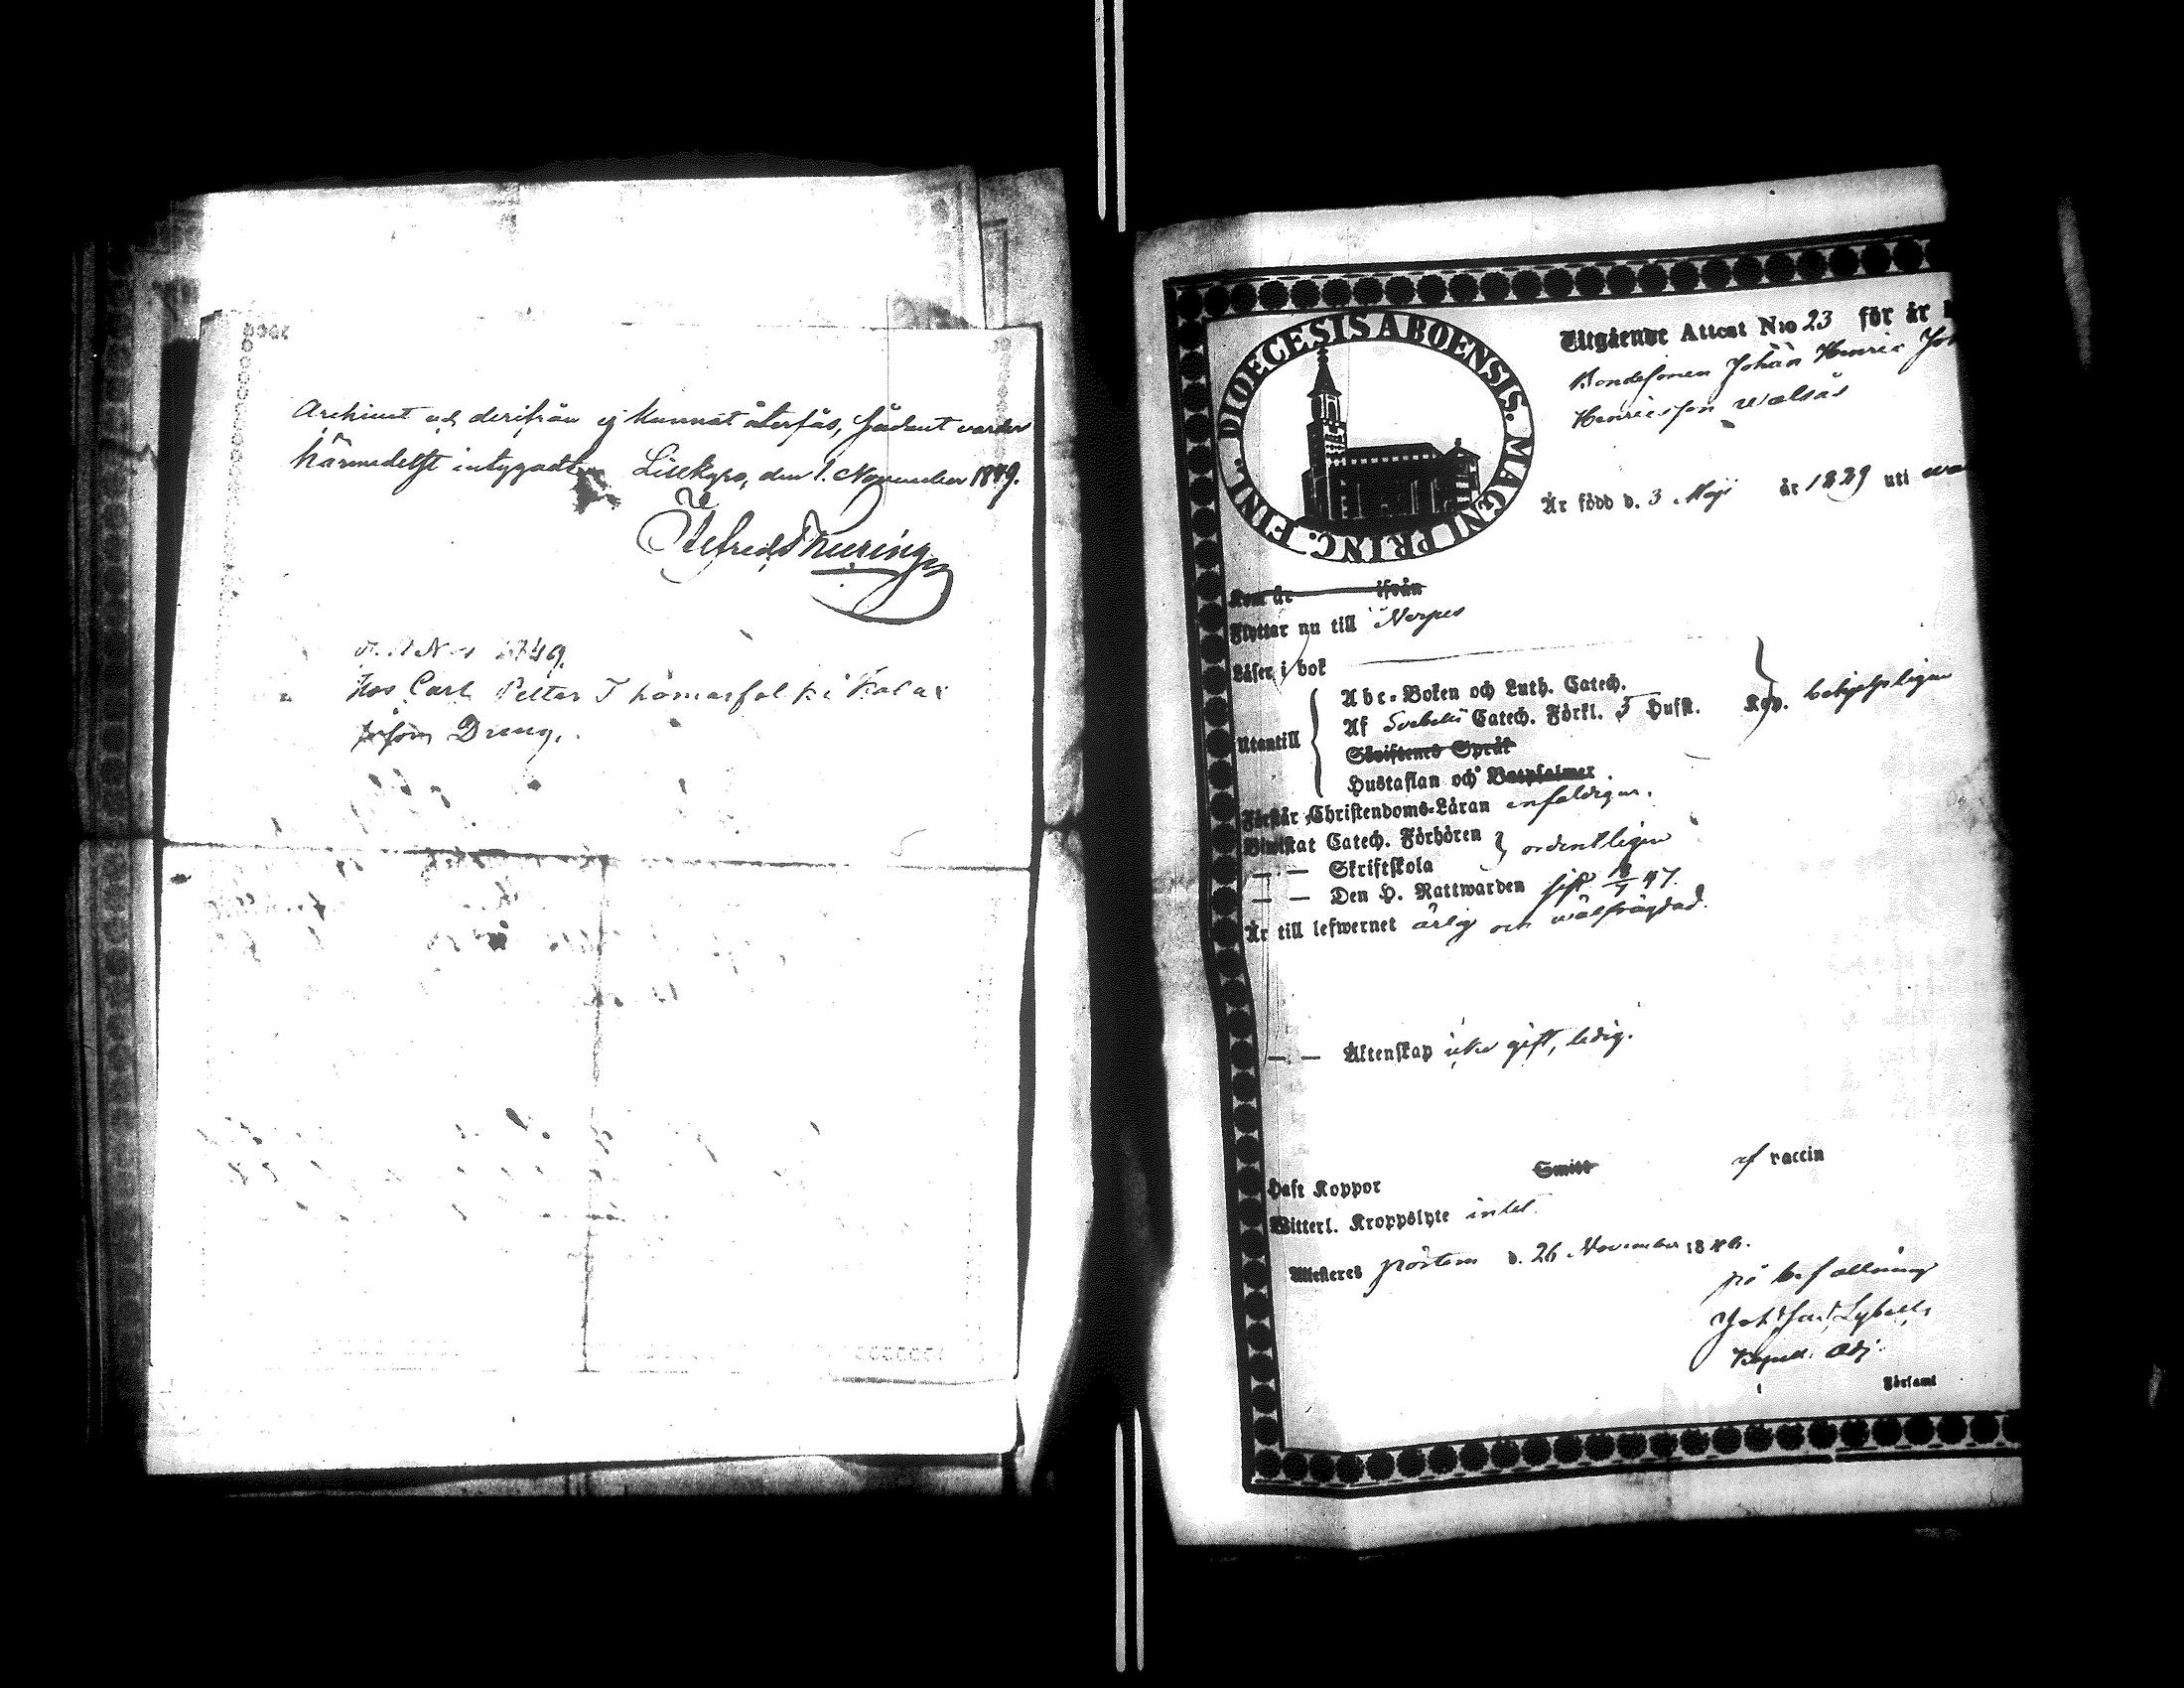 Archivet och derifrån ej kunnat återfås, sådant varder
härmedelst intygadt Lillkyro, den 1. November 1849.
Alfred Thuring
Nov 1849.
Hos Carl Petter Thomasfolk i Kalax
såsom Dräng.
DIOECESIS ABOENSIS. MAGNI PRINC. FINL.
Utgående Attest N:o 23 för år
Bondesonen Johan Henric
Henricsson Walsås
Är född d. 3 Maji år 1829 uti
Kom år ifrån
Flyttar nu till Nerpes
Läser i bok
Utantill
Abc-Boken och Luth. Catech.
Af Svebelii Catech. Förkl. 5 Hufst. behjelpligen
Skriftenes Språk
Hustaflan och Botpsalmer
Förstår Christendoms-Läran enfaldigen.
Biwistat Catech. Förhören ordentligen
— — Skriftskola
— — Den H. Nattwarden sist 18/7 47.
Är till lefwernet ärlig och wälfrägdad.
— — Äktenskap icke gift, ledig.
Haft Koppor Smitt af vaccin
Witterl. Kroppslyte intet.
Attesteras Pörtom d. 26 November 1848.
på befallning
Adj.
Församl